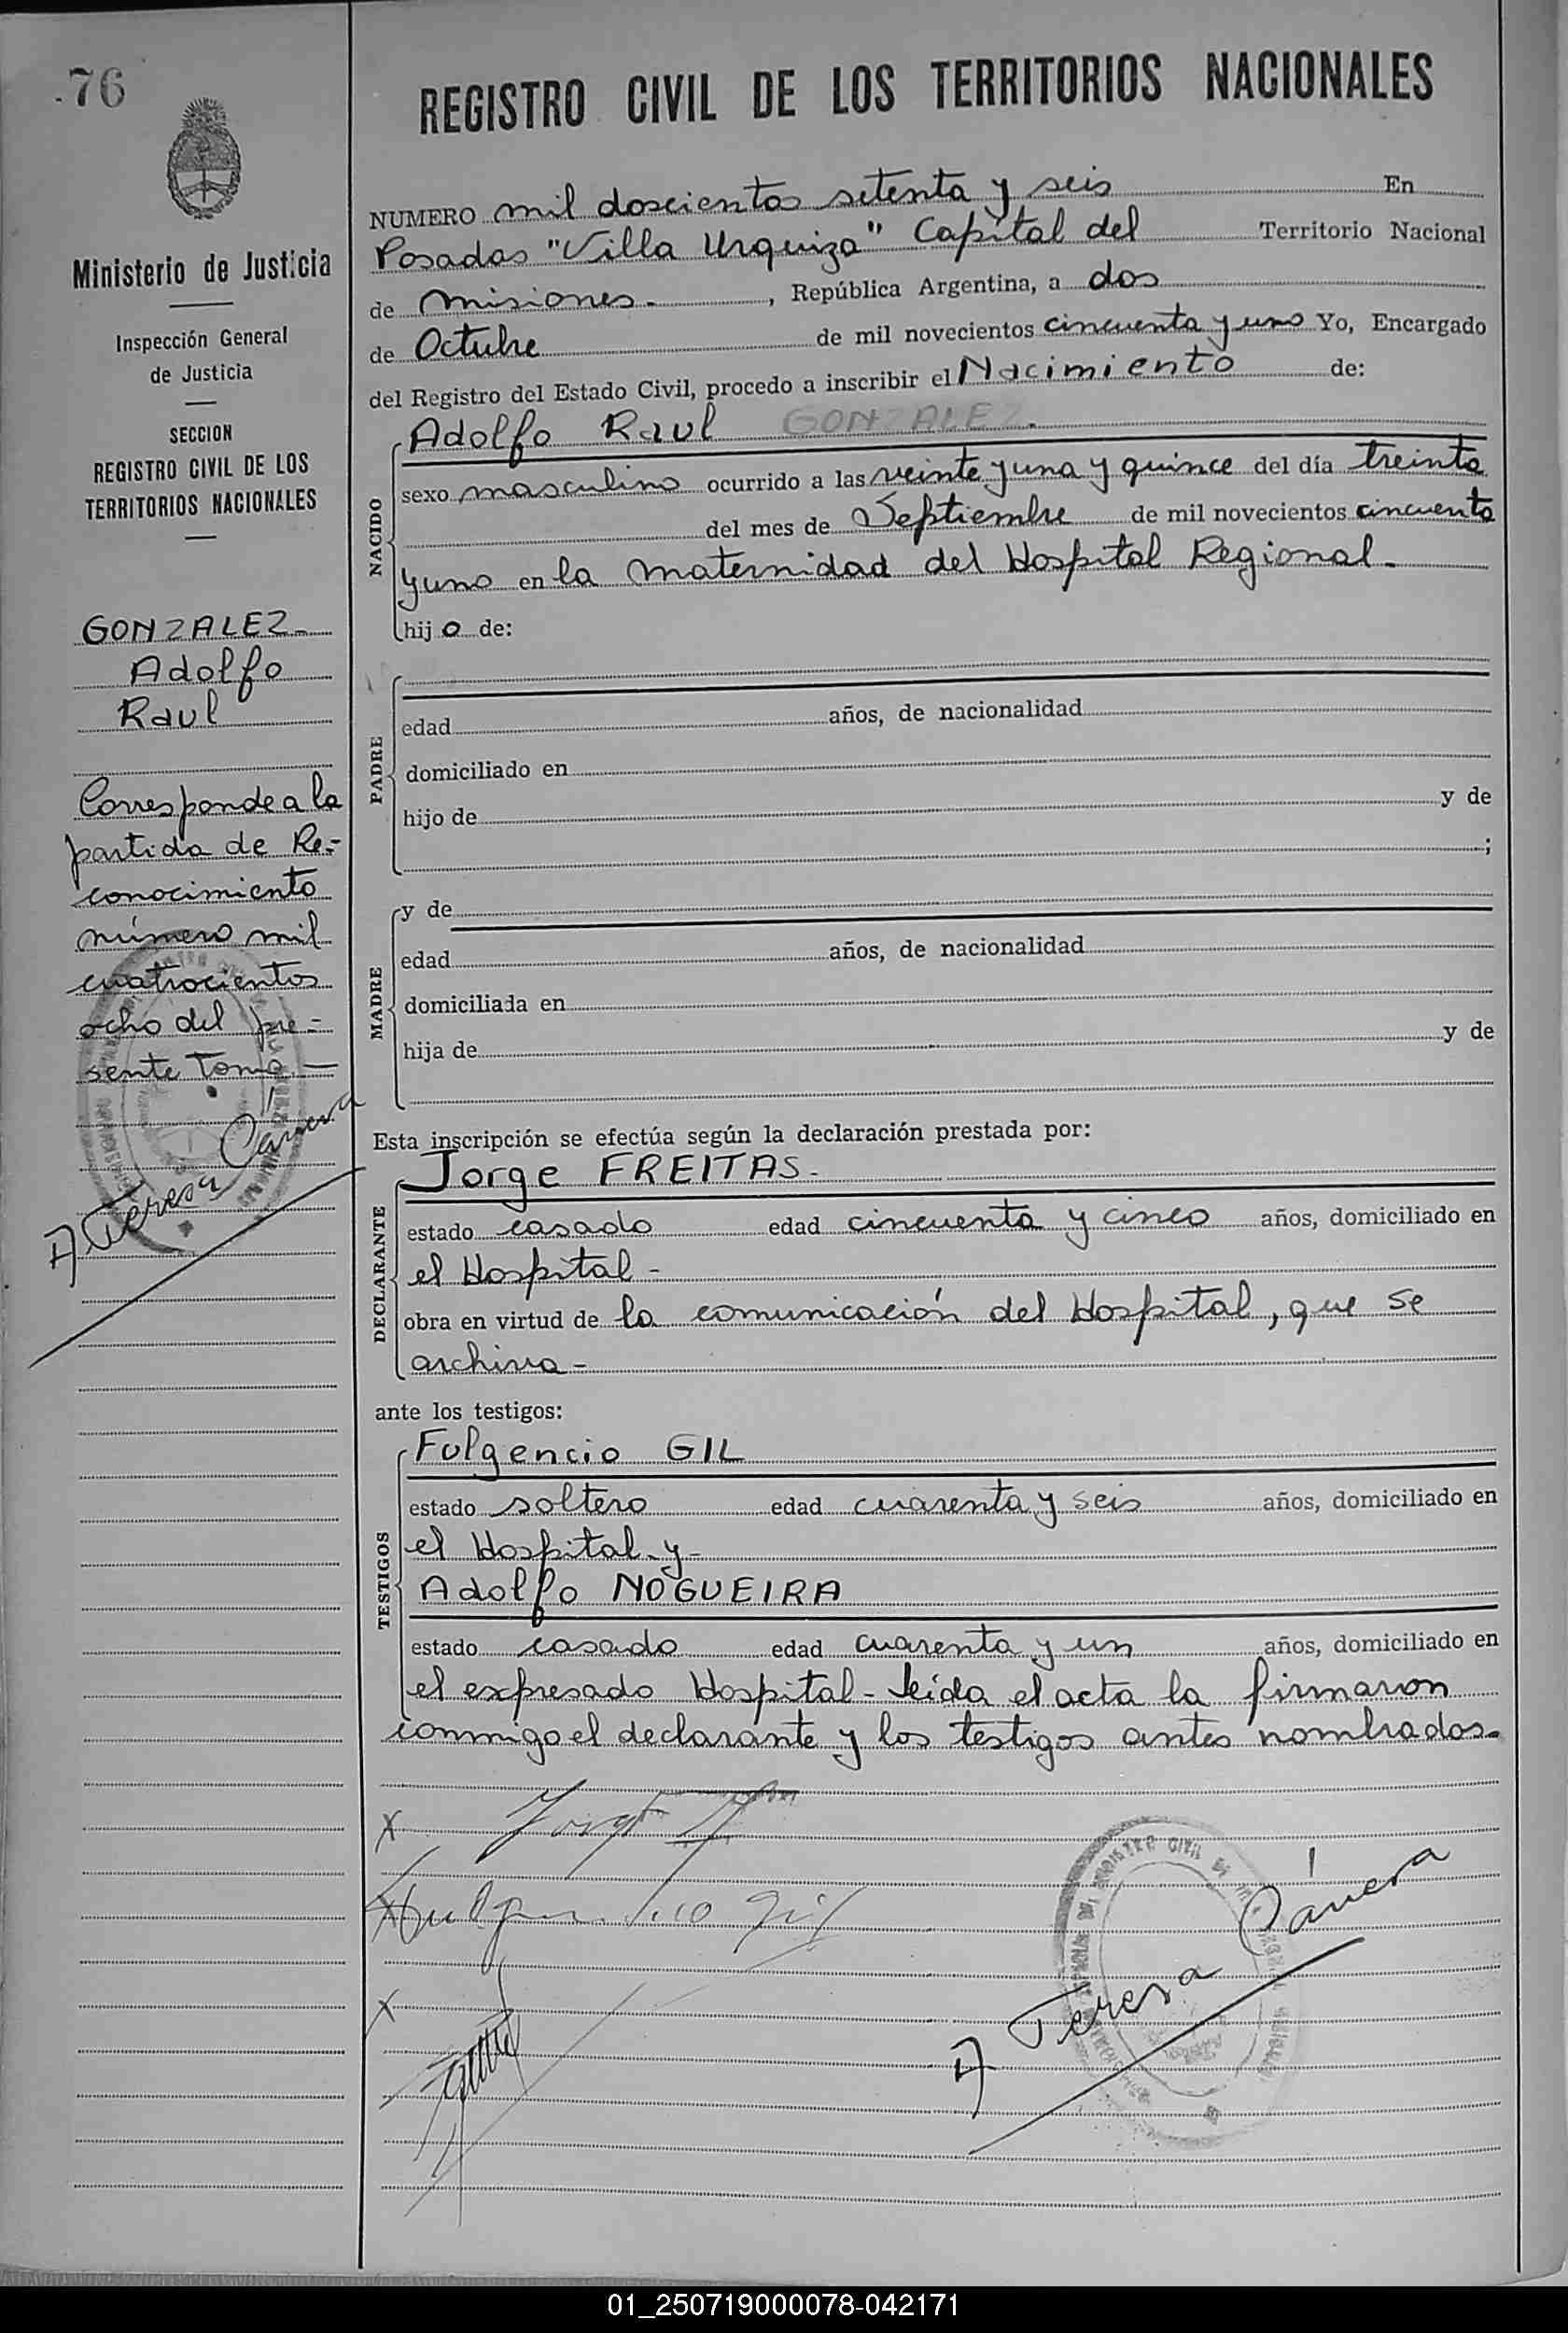 76
Ministerio de Justicia
Inspección General
de Justicia
SECCION
REGISTRO CIVIL DE LOS
TERRITORIOS NACIONALES
GONZALEZ-
Adolfo
Raul
Corresponde a la
partida de Re-
conocimiento
número mil
cuatrocientos
ocho del pre-
sente Tomo-
A Teresa Cánera
REGISTRO CIVIL DE LOS TERRITORIOS NACIONALES
NUMERO mil doscientos setenta y seis En
Posadas "Villa Urquiza" Capital del Territorio Nacional
de Misiones-, República Argentina, a dos
de Octubre de mil novecientos cincuenta y uno Yo, Encargado
del Registro del Estado Civil, procedo a inscribir el Nacimiento de:
NACIDO
Adolfo Raul GONZALEZ.
sexo masculino ocurrido a las veinte y una y quince del día treinta
del mes de Septiembre de mil novecientos cincuenta
y uno en la maternidad del Hospital Regional-
hijo de:
PADRE
edad años, de nacionalidad
domiciliado en
hijo de y de
;
MADRE
y de
edad años, de nacionalidad
domiciliada en
hija de y de
Esta inscripción se efectúa según la declaración prestada por:
DECLARANTE
Jorge FREITAS-
estado casado edad cincuenta y cinco años, domiciliado en
el Hospital-
obra en virtud de la comunicación del Hospital, que se
archiva-
ante los testigos:
TESTIGOS
Fulgencio GIL
estado soltero edad cuarenta y seis años, domiciliado en
el Hospital-y-
Adolfo NOGUEIRA
estado casado edad cuarenta y un años, domiciliado en
el expresado Hospital- Leida el acta la firmaron
conmigo el declarante y los testigos antes nombrados-
x Jorge
x Gil
x
A Teresa Cánera
01_250719000078-042171